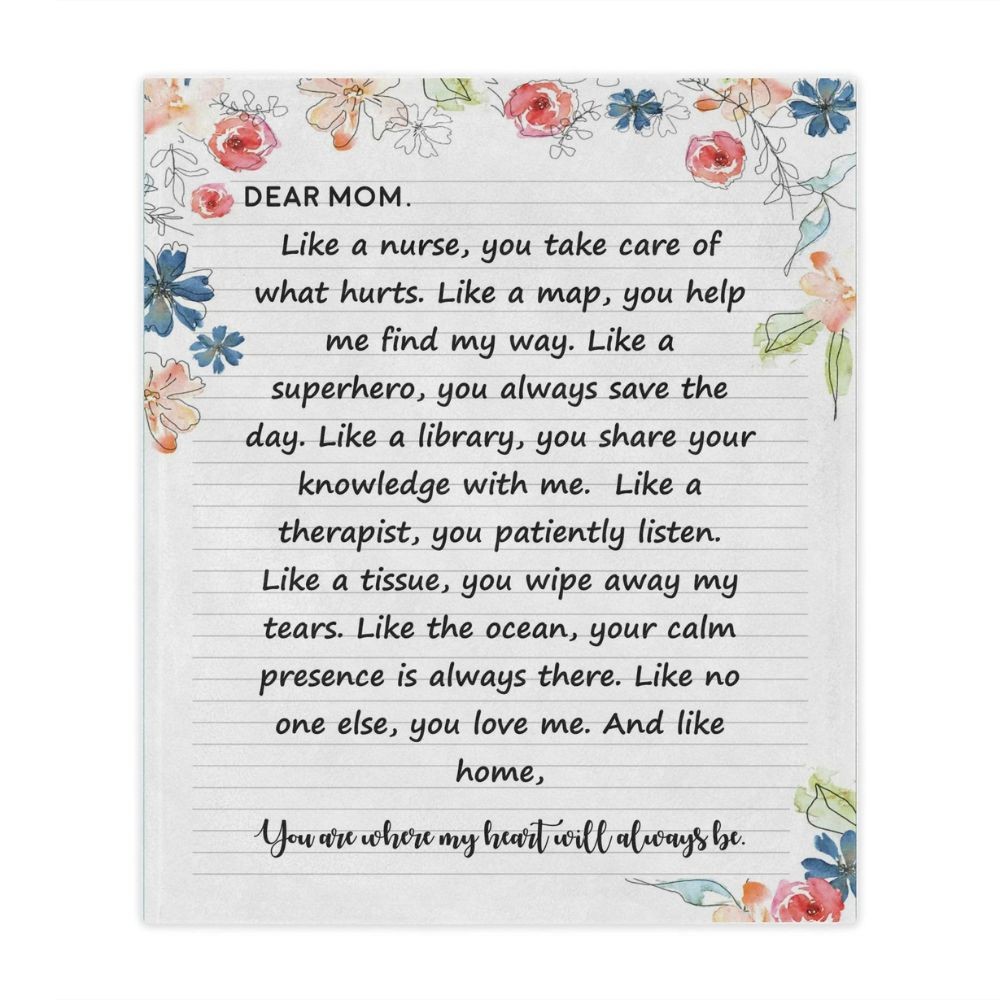 DEAR MOM.
Like a nurse, you take care of
what hurts. Like a map, you help
me find my way. Like a
superhero, you always save the
day. Like a library, you share your
knowledge with me.  Like a
therapist, you patiently listen.
Like a tissue, you wipe away my
tears. Like the ocean, your calm
presence is always there. Like no
one else, you love me. And like
home,
You are where my heart will always be.